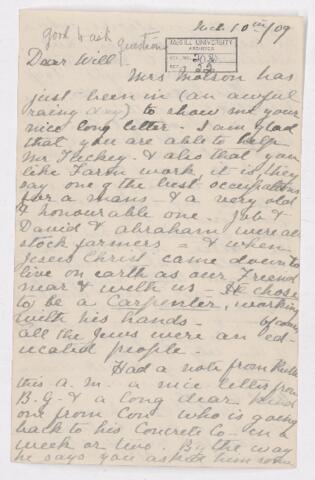 10th/09
good to ask questions
McGILL UNIVERSITY
ARCHIVES
ACC. NO.
REF.
Dear Will
Mrs Molson has
just been in (an awful
rainy day) to show me your
nice long letter. I am glad
that you are able to help
Mr. & also that you
like Farm work it is they
say one of the best occupations
for a mans - & a very old
& honourable one. Job &
David & abraham were all
stock farmers = & when
Jesus Christ came down to
live on earth as our Friend
near & with us - He chose
to be a Carpenter, working
with his hands -
all the Jews were an ed-
ucated people.
Had a note from
this a.m. a nice letter from
B.G. & a long dear kind
one from Con - who is going
back to his Concrete Co - in a
week or two. By the way
he says you asked him some